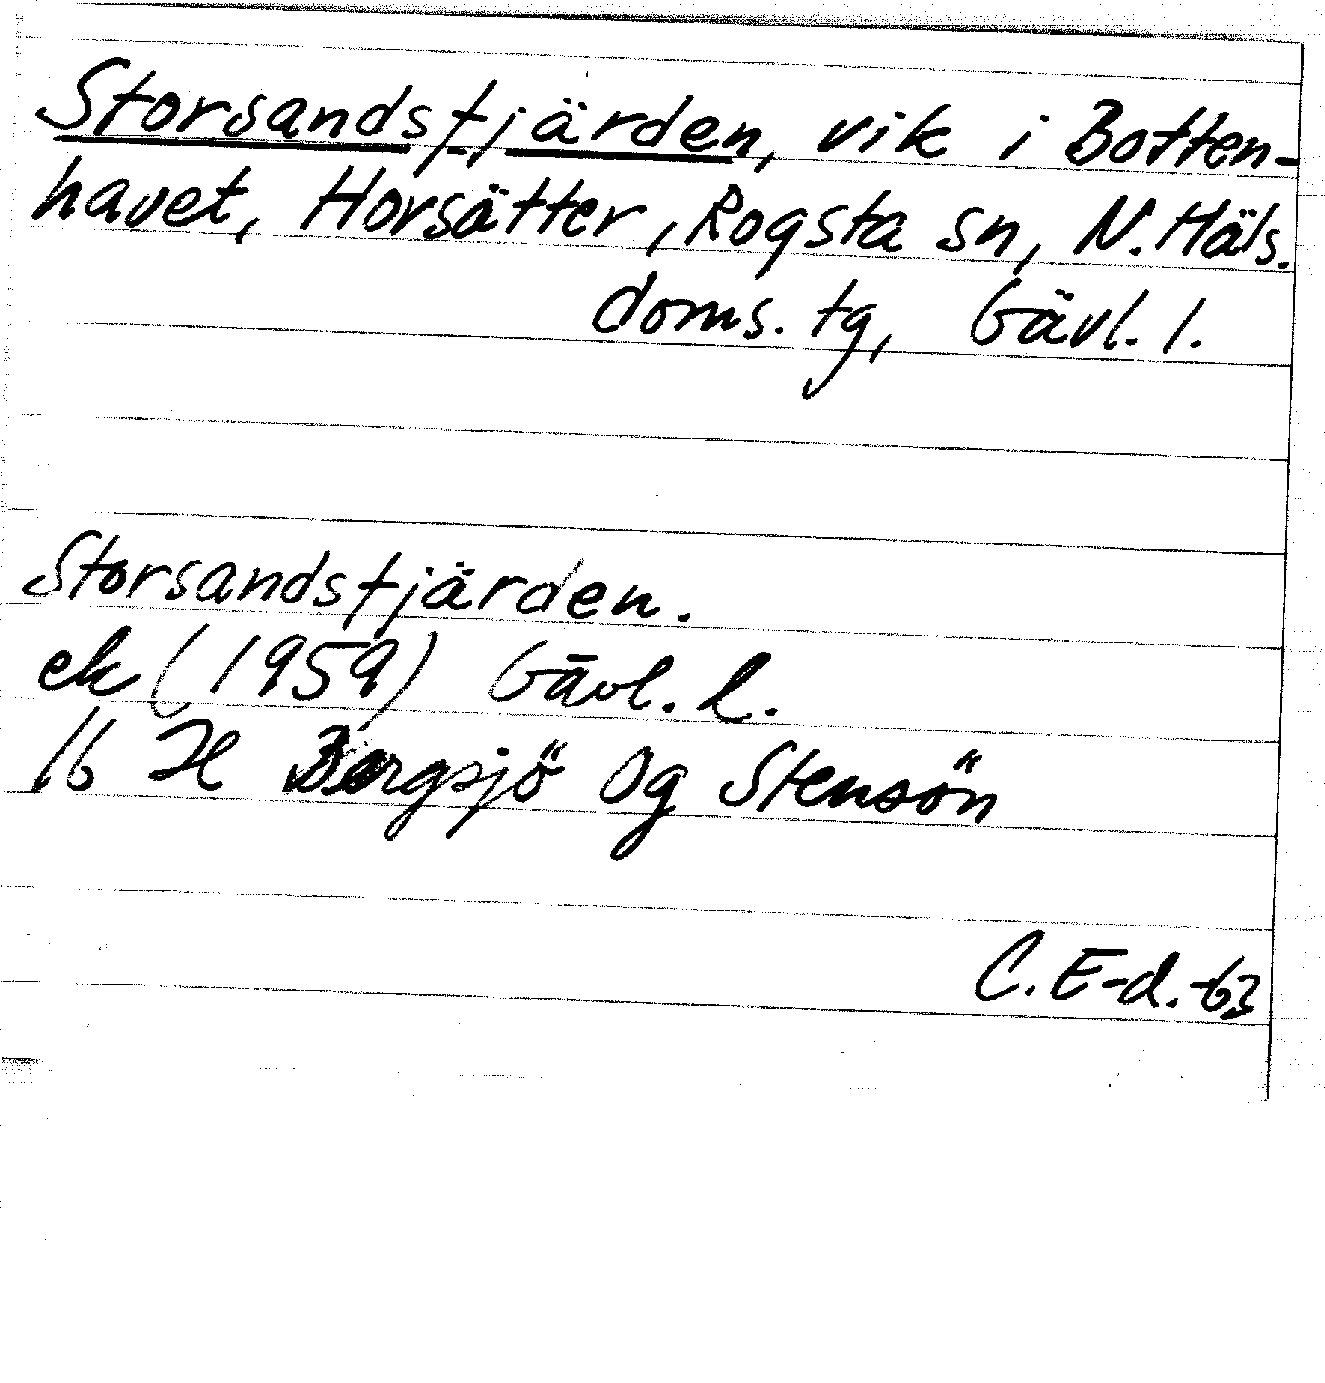 Storsandsfjärden, vik i Botten-
havet, Horsätter, Rogsta sn, N. Häls.
doms. tg, Gävl. l.
Storsandsfjärden.
ek (1959) Gävl. l.
16 H Bergsjö Og Stensön
C. E-d. -63